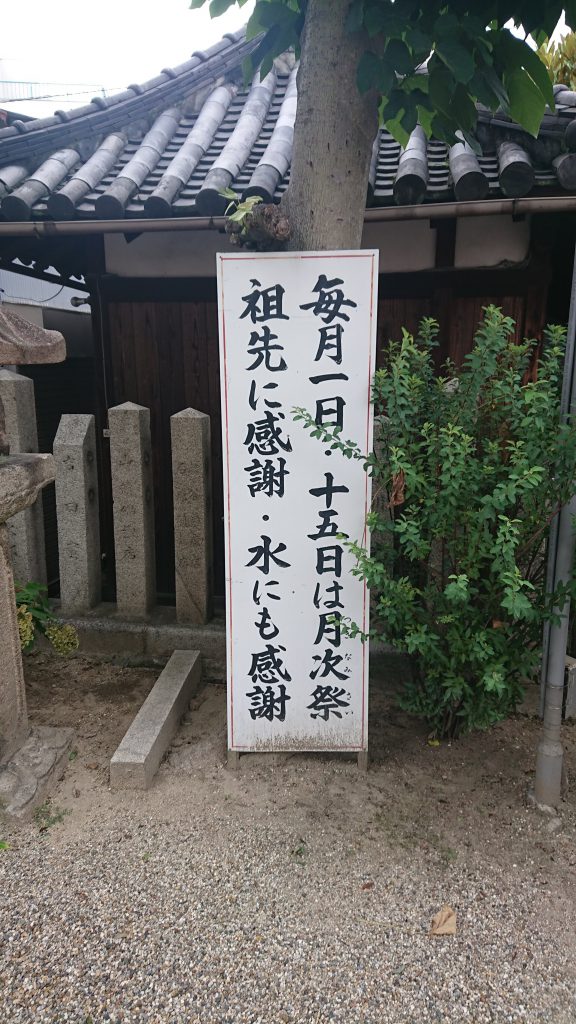 毎月一日・十五日は月次祭
つきなみさい
祖先に感謝・水にも感謝